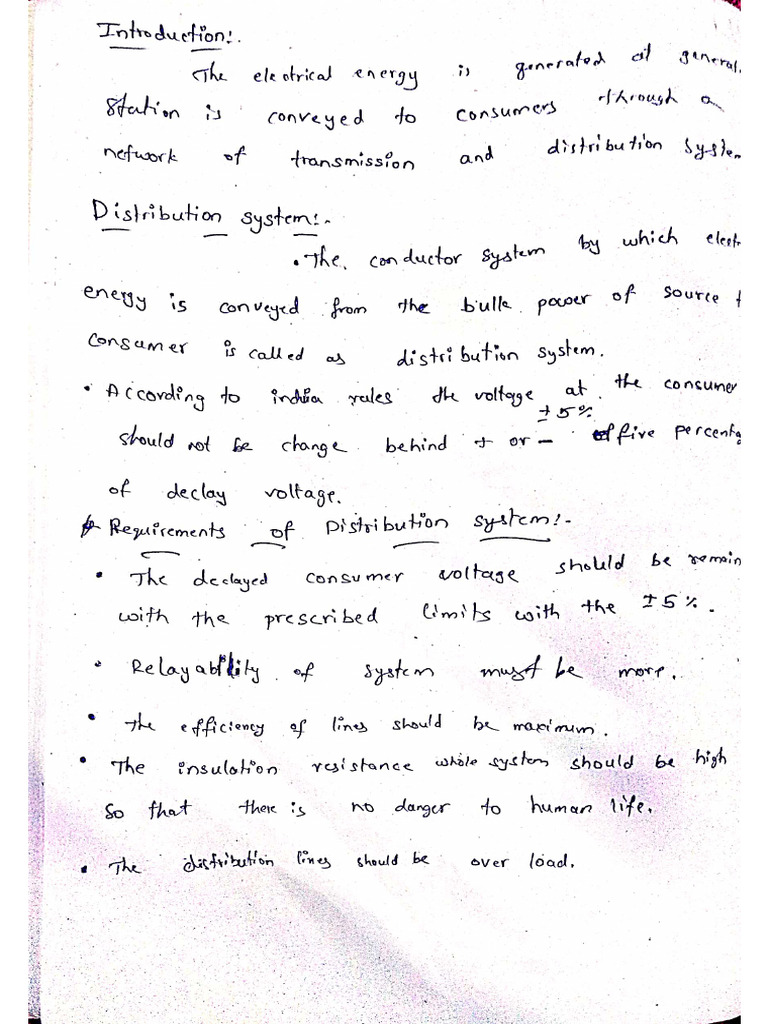 Introduction:.
The electrical energy is generated at general.
Station is conveyed to consumers through a
network of transmission and distribution System
Distribution system:-
• The conductor system by which electr
energy is conveyed from the bulk power of source t
consumer is called as distribution system.
• According to india rules the voltage at the consumer
±5%
should not be change behind + or - of five percentag
of declay voltage.
Requirements of Distribution system:-
• The declayed consumer voltage should be remain
with the prescribed limits with the ±5%.
• Relayability of system must be more.
• The efficiency of lines should be maximum.
• The insulation resistance whole system should be high
So that there is no danger to human life.
• The distribution lines should be over load.